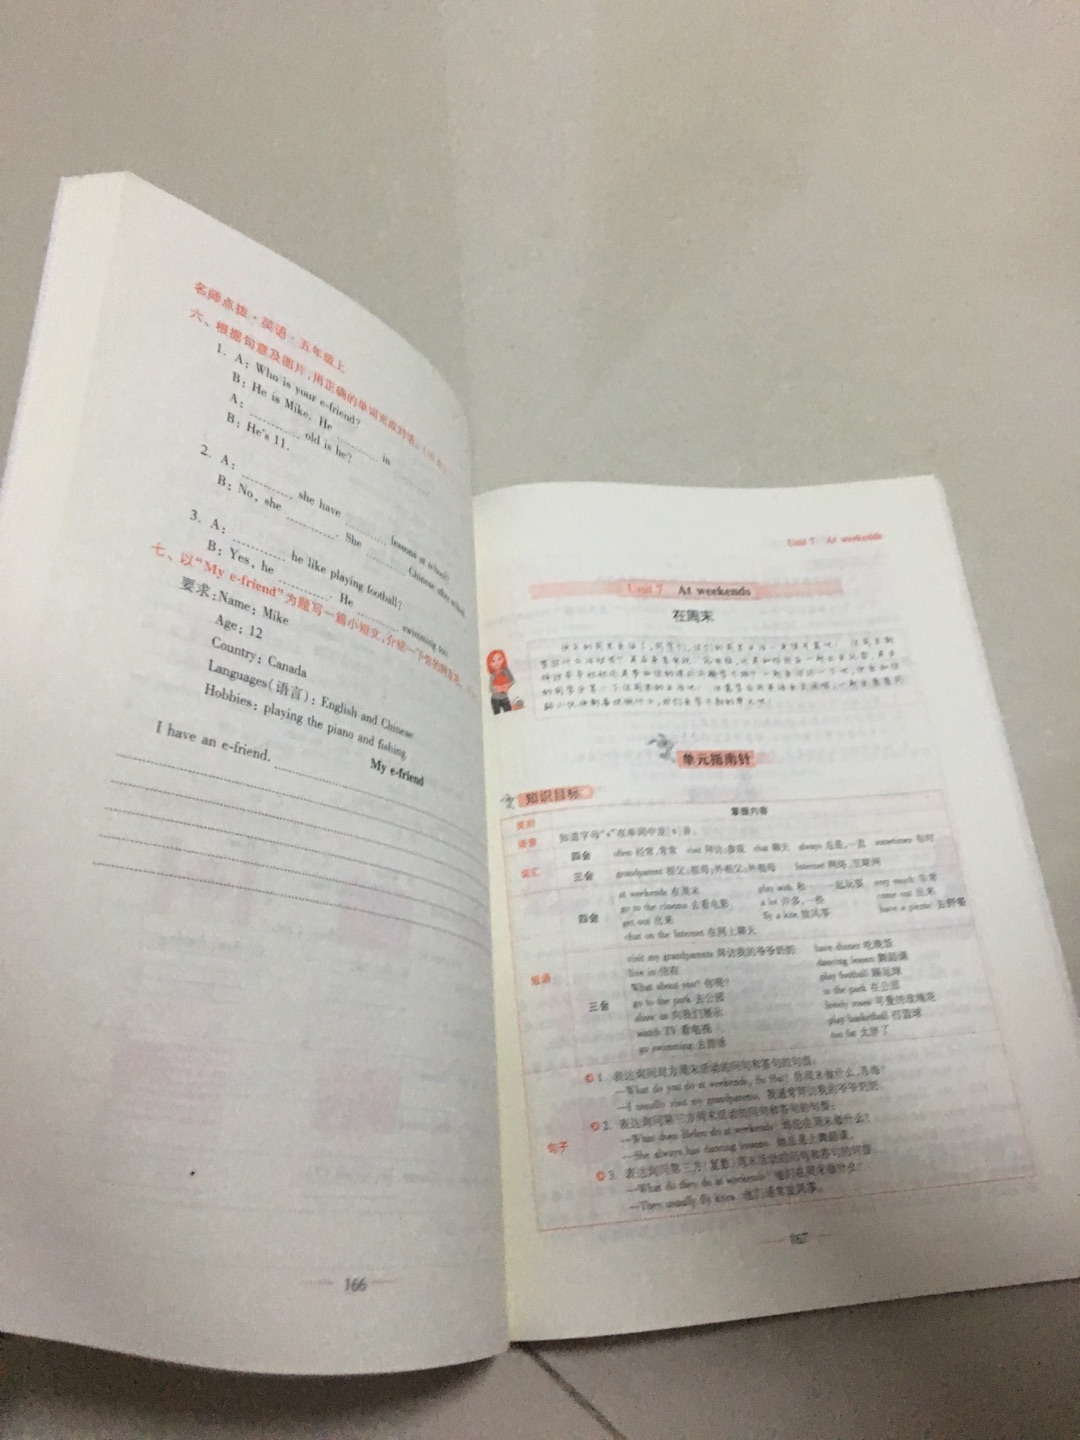 名师点拨·英语·五年级上
六、根据句意及图片,用正确的单词完成对话。
1. A: Who is your e-friend?
B: He is Mike. He in
A: old is he?
B: He's 11.
2. A: she have lessons at school?
B: No, she . She Chinese after school.
3. A: he like playing football?
B: Yes, he . He swimming too.
七、以“My e-friend”为题写一篇小短文,介绍一下你的网友吧。
要求:Name: Mike
Age: 12
Country: Canada
Languages(语言): English and Chinese
Hobbies: playing the piano and fishing
My e-friend
I have an e-friend.
166
Unit 7 At weekends
Unit 7 At weekends
在周末
单元指南针
知识目标
类别 掌握内容
语音 知道字母“s”在单词中发[s]音。
词汇
四会 often 经常,常常 visit 拜访;参观 chat 聊天 always 总是,一直 sometimes 有时
三会 grandparent 祖父;祖母;外祖父;外祖母 Internet 网络,互联网
短语
四会
at weekends 在周末 play with 和……一起玩耍 very much 非常
go to the cinema 去看电影 a lot 许多,一些 come out 出来
get out 出来 fly a kite 放风筝 have a picnic 去野餐
chat on the Internet 在网上聊天
三会
visit my grandparents 拜访我的爷爷奶奶 have dinner 吃晚饭
live in 住在 dancing lesson 舞蹈课
What about you? 你呢? play football 踢足球
go to the park 去公园 in the park 在公园
show us 向我们展示 lovely roses 可爱的玫瑰花
watch TV 看电视 play basketball 打篮球
go swimming 去游泳 too fat 太胖了
句子
1. 表达询问对方周末活动的问句和答句的句型:
—What do you do at weekends, Su Hai? 你周末做什么,苏海?
—I usually visit my grandparents. 我通常拜访我的爷爷奶奶。
2. 表达询问第三方周末活动的问句和答句的句型:
—What does Helen do at weekends? 海伦在周末做什么?
—She always has dancing lessons. 她总是上舞蹈课。
3. 表达询问第三方(复数)周末活动的问句和答句的句型:
—What do they do at weekends? 他们在周末做什么?
—They usually fly kites. 他们通常放风筝。
167